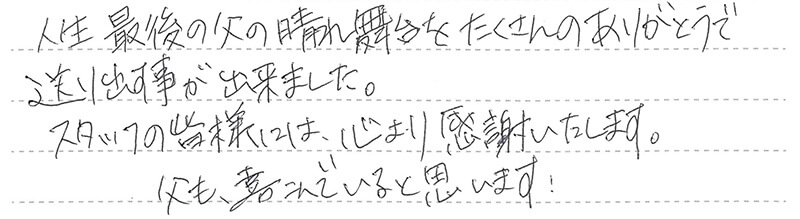 人生最後の父の晴れ舞台をたくさんのありがとうで
送り出す事が出来ました。
スタッフの皆様には、心より感謝いたします。
父も、喜こんでいると思います!